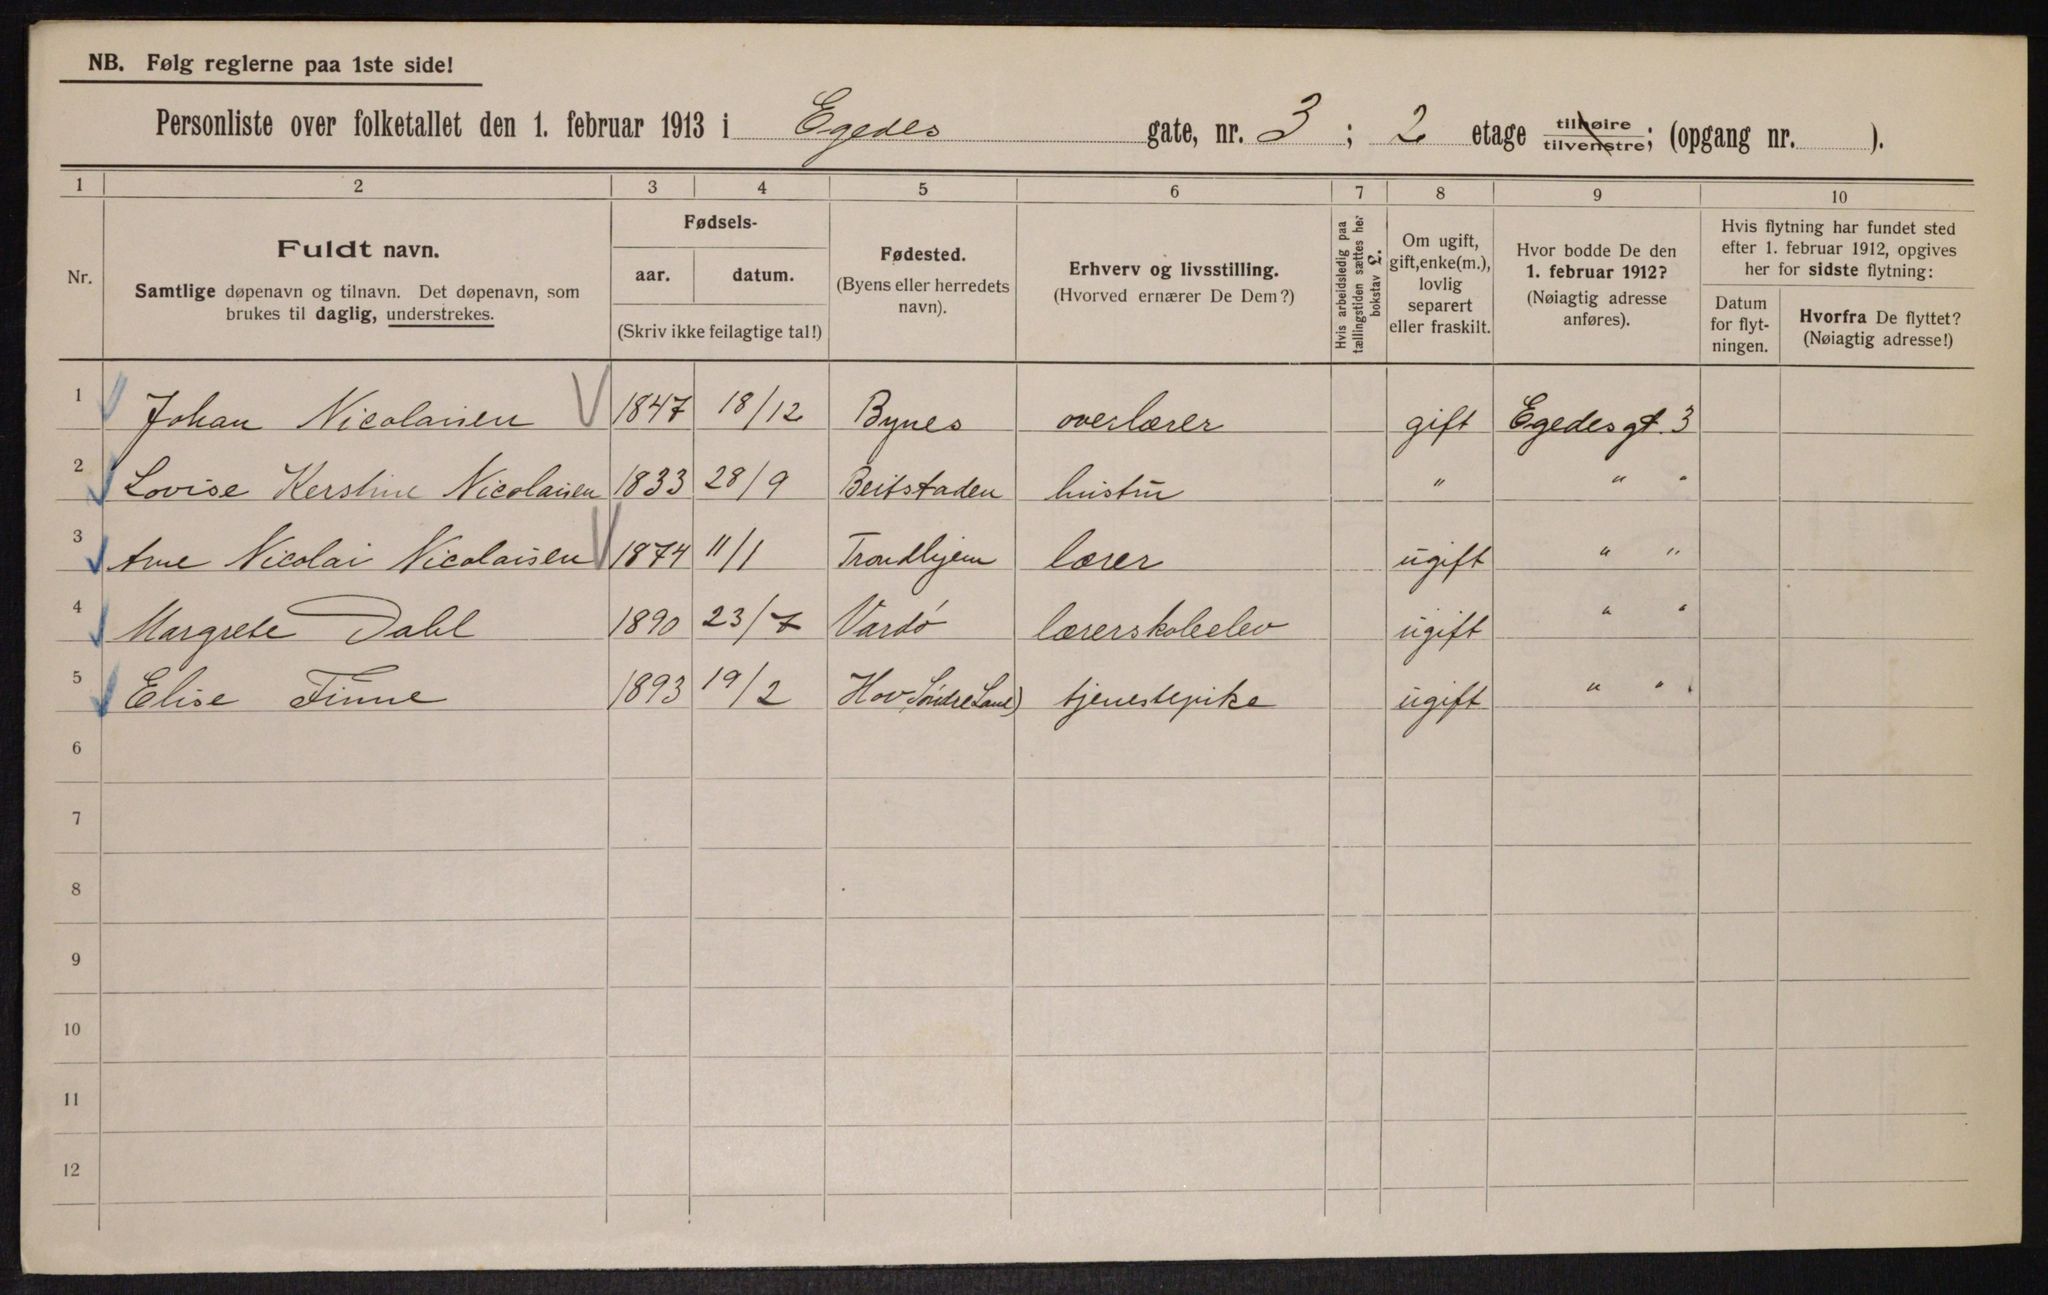 NB. Følg reglerne paa 1ste side!
Personliste over folketallet den 1. februar 1913 i Egedes gate, nr. 3 ; 2 etage tilhøire tilvenstre; (opgang nr. ).
1 2 3 4 5 6 7 8 9 10
Nr.
Fuldt navn.
Samtlige døpenavn og tilnavn. Det døpenavn, som
brukes til daglig, understrekes.
Fødsels-
aar. datum.
(Skriv ikke feilagtige tal!)
Fødested.
(Byens eller herredets
navn).
Erhverv og livsstilling.
(Hvorved ernærer De Dem?)
Hvis arbeidsledig paa
tællingstiden sættes her
bokstav L.
Om ugift,
gift, enke(m.),
lovlig
separert
eller fraskilt.
Hvor bodde De den
1. februar 1912?
(Nøiagtig adresse
anføres).
Hvis flytning har fundet sted
efter 1. februar 1912, opgives
her for sidste flytning:
Datum
for flyt-
ningen.
Hvorfra De flyttet?
(Nøiagtig adresse!)
1 Johan Nicolaisen 1847 18/12 Bynes overlærer gift Egedesgt. 3
2 Lovise Kerstine Nicolaisen 1833 28/9 Beitstaden hustru " " "
3 Arne Nicolai Nicolaisen 1874 11/1 Trondhjem lærer ugift " "
4 Margrete Dahl 1890 23/7 Vardø lærerskoleelev ugift " "
5 Elise Finne 1893 19/2 Hov Søndre Land) tjenestepike ugift " "
6
7
8
9
10
11
12